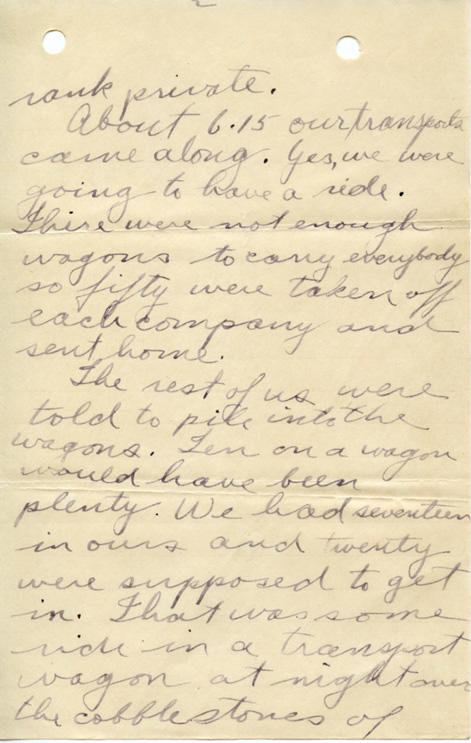 rank private.
About 6.15 our transports
came along. Yes, we were
going to have a ride.
There were not enough
wagons to carry everybody
so fifty were taken off
each company and
sent home.
The rest of us were
told to pile into the
wagons. Ten on a wagon
would have been
plenty. We had seventeen
in ours and twenty
were supposed to get
in. That was some
ride in a transport
wagon at night over
the cobblestones of